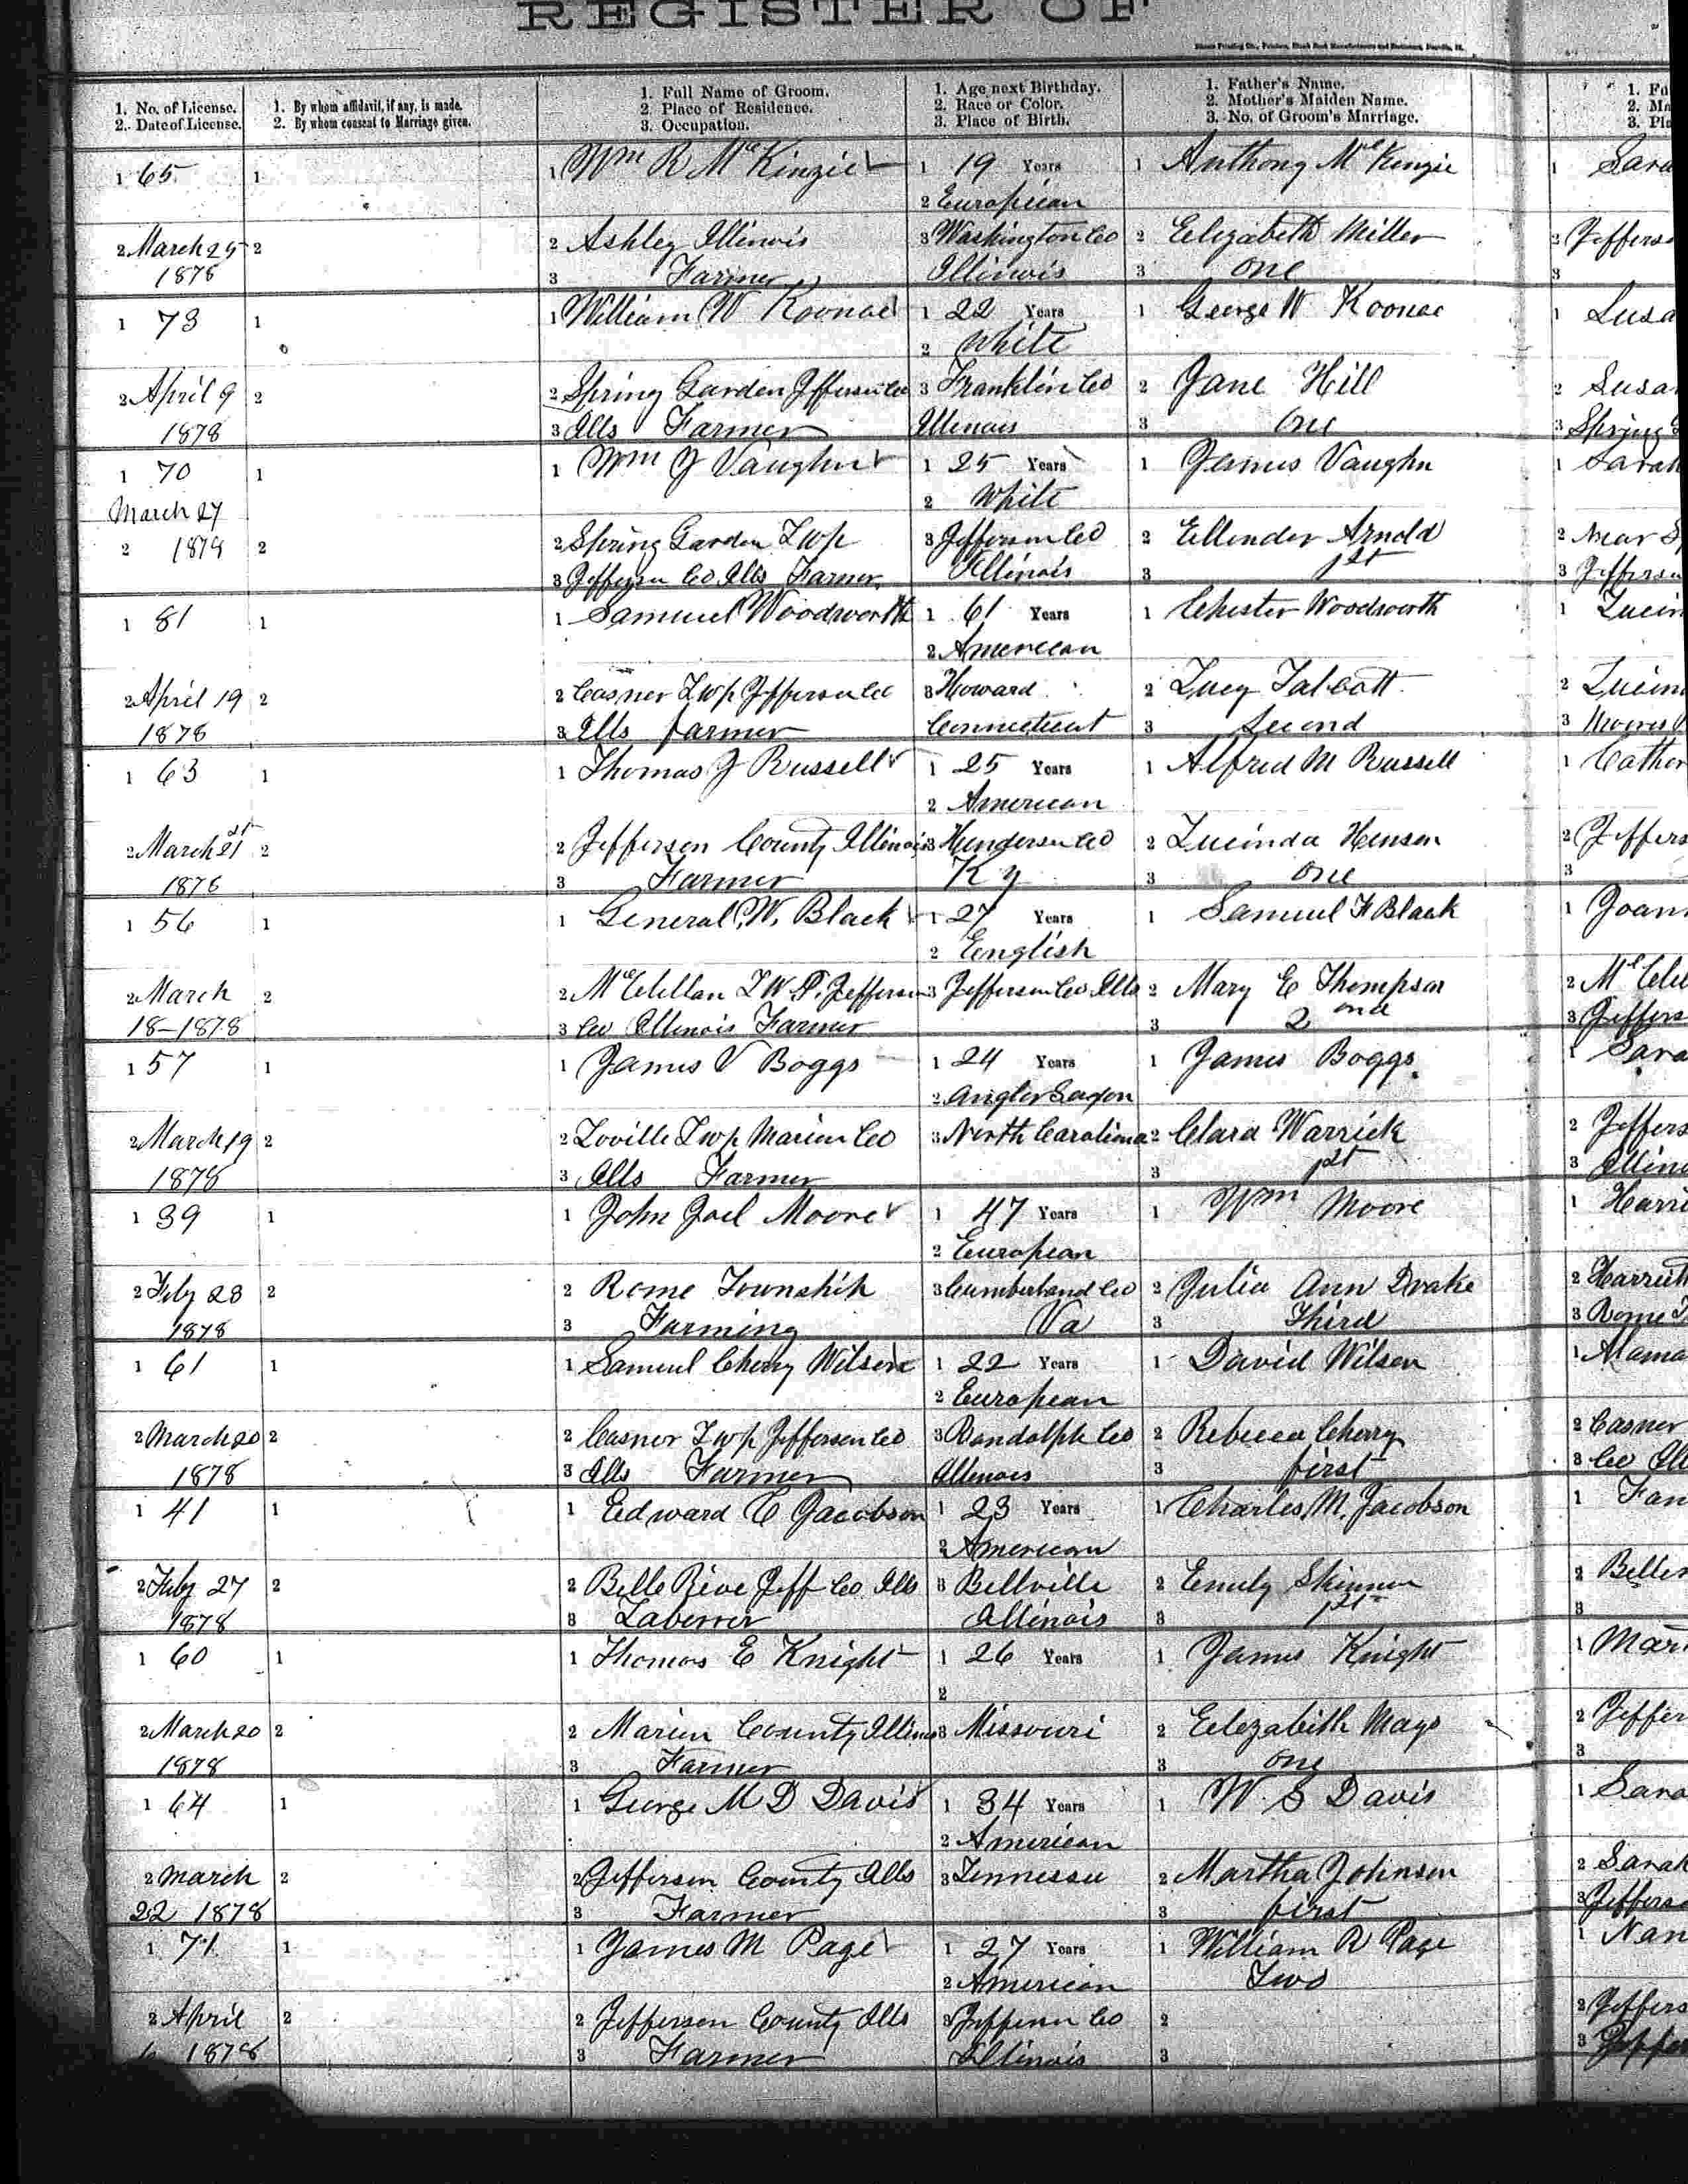 REGISTER OF
1. No. of License.
2. Date of License.
1. By whom affidavit, if any, is made.
2. By whom consent to Marriage given.
1. Full Name of Groom.
2. Place of Residence.
3. Occupation.
1. Age next Birthday.
2. Race or Color.
3. Place of Birth.
1. Father's Name.
2. Mother's Maiden Name.
3. No. of Groom's Marriage.
1 65 1 1 Wm R McKinzie 1 19 Years 1 Anthony McKinzie 1 Sara
2 European
2 March 25 2 2 Ashley Illinois 3 Washington Co 2 Elizabeth Miller 2 Jeffers
1878 3 Farmer Illinois 3 one 3
1 73 1 1 William W Koonce 1 22 Years 1 George W Koonce 1 Susa
2 White
2 April 9 2 2 Spring Garden Jefferson Co 3 Franklin Co 2 Jane Hill 2 Susa
1878 3 Ills Farmer Illinois 3 one 3 Spring
1 70 1 1 Wm J Vaughn 1 25 Years 1 James Vaughn 1 Sarah
March 27 2 White
2 1878 2 2 Spring Garden Twp 3 Jefferson Co 2 Ellender Arnold 2 Near
3 Jefferson Co Ills Farmer Illinois 3 1st 3 Jefferso
1 81 1 1 Samuel Woodworth 1 61 Years 1 Chester Woodsworth 1 Lucin
2 American
2 April 19 2 2 Casner Twp Jefferson Co 3 Howard 2 Lucy Talbott 2 Lucin
1878 3 Ills farmer Connecticut 3 Second 3
1 63 1 1 Thomas J Russell 1 25 Years 1 Alfred M Russell 1 Cather
2 American
2 March 21 2 2 Jefferson County Illinois 3 Henderson Co 2 Lucinda Henson 2 Jeffers
1878 3 Farmer Ky 3 one 3
1 56 1 1 General W. Black 1 27 Years 1 Samuel H Black 1 Joan
2 English
2 March 2 2 McClellan TW.P. Jefferson 3 Jefferson Co Ills 2 Mary E Thompson 2 McClel
18-1878 3 Co Illinois Farmer 3 2ond 3 Jeffers
1 57 1 1 James V Boggs 1 24 Years 1 James Boggs 1 Sara
2 Anglo Saxon
2 March 19 2 2 Zoville Twp Marion Co 3 North Carolina 2 Clara Warrick 2 Jeffers
1878 3 Ills Farmer 3 1st 3 Illino
1 39 1 1 John Joel Moore 1 47 Years 1 Wm Moore 1 Harri
2 European
2 Feby 28 2 2 Rome Township 3 Cumberland Co 2 Julia Ann Drake 2 Harriett
1878 3 Farming Va 3 Third 3 Rome T
1 61 1 1 Samuel Cherry Wilson 1 22 Years 1 David Wilson 1 Alama
2 European
2 March 20 2 2 Casner Twp Jefferson Co 3 Randolph Co 2 Rebecca Cherry 2 Casner
1878 3 Ills Farmer Illinois 3 first 3 Co Ill
1 41 1 1 Edward C Jacobson 1 23 Years 1 Charles M. Jacobson 1 Fan
2 American
2 Feby 27 2 2 Belle Rive Jeff Co Ills 3 Bellville 2 Emily Skinner 2 Belle
1878 3 Laborer Illinois 3 1st 3
1 60 1 1 Thomas E Knight 1 26 Years 1 James Knight 1 Mar
2
2 March 20 2 2 Marion County Illinois 3 Missouri 2 Elezabeth Mays 2 Jeffer
1878 3 Farmer 3 one 3
1 64 1 1 George M D Davis 1 34 Years 1 W. S Davis 1 Sara
2 American
2 March 2 2 Jefferson County Ills 3 Tennessee 2 Martha Johnson 2 Sarah
22 1878 3 Farmer 3 first 3 Jefferso
1 71 1 1 James M Page 1 27 Years 1 William R Page 1 Nan
2 American Two
2 April 2 2 Jefferson County Ills 3 Jefferson Co 2 2 Jeffers
1878 3 Farmer Illinois 3 3 Jeffer